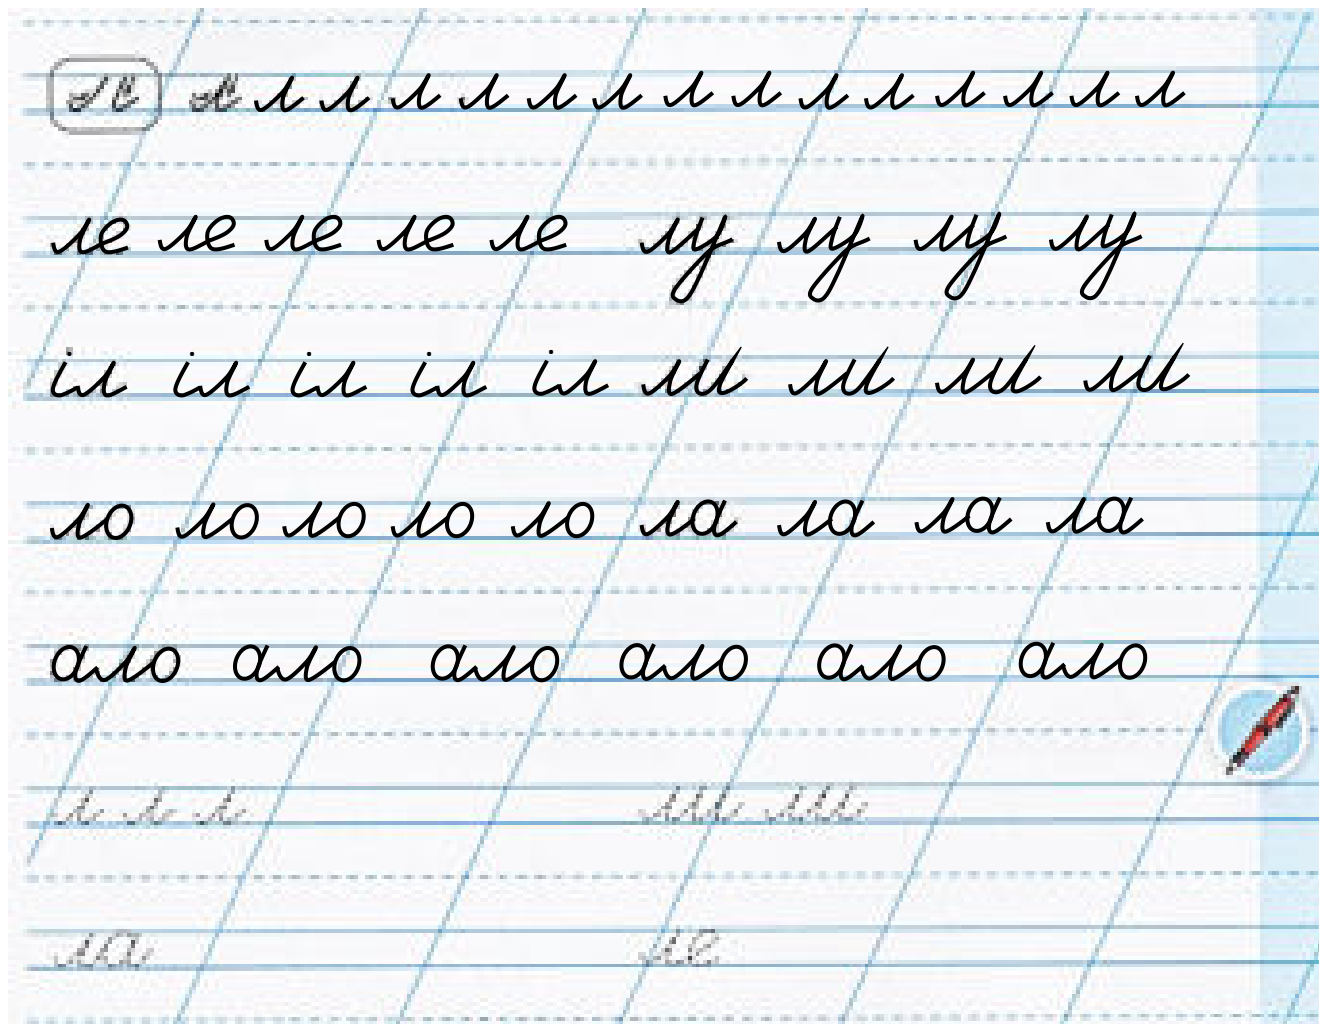 л л л л л л л л л л л л л л
ле ле ле ле ле лу лу лу лу
іл іл іл іл іл ли ли ли ли
ло ло ло ло ло ла ла ла ла
ало ало ало ало ало ало
л л л ли ли
ла ле